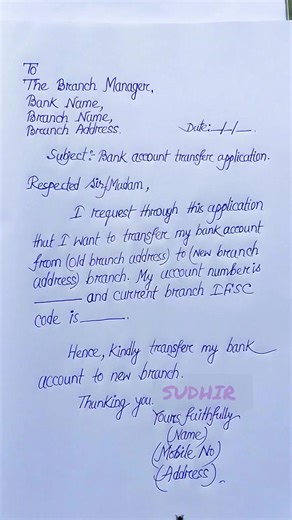 To
The Branch Manager,
Bank Name,
Branch Name,
Branch Address.
Date:-_/_/_.
Subject:- Bank account transfer application.
Respected Sir/Madam,
I request through this application
that I want to transfer my bank account
from (old branch address) to (New branch
address) branch. My account number is
______ and current branch IFSC
code is ______.
Hence, kindly transfer my bank
account to new branch.
Thanking you. SUDHIR
Yours faithfully
(Name)
(Mobile No)
(Address).